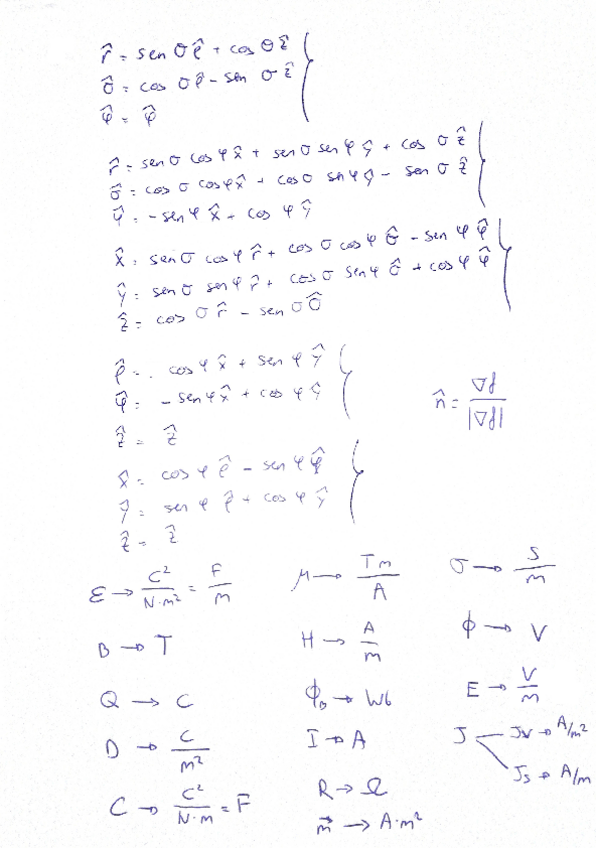 r̂ = sen θ ρ̂ + cos θ ẑ
θ̂ = cos θ ρ̂ - sen θ ẑ
φ̂ = φ̂
r̂ = sen θ cos φ x̂ + sen θ sen φ ŷ + cos θ ẑ
θ̂ = cos θ cos φ x̂ + cos θ sen φ ŷ - sen θ ẑ
φ̂ = -sen φ x̂ + cos φ ŷ
x̂ = sen θ cos φ r̂ + cos θ cos φ θ̂ - sen φ φ̂
ŷ = sen θ sen φ r̂ + cos θ sen φ θ̂ + cos φ φ̂
ẑ = cos θ r̂ - sen θ θ̂
ρ̂ = cos φ x̂ + sen φ ŷ
φ̂ = -sen φ x̂ + cos φ ŷ
n̂ = ∇f / |∇f|
ẑ = ẑ
x̂ = cos φ ρ̂ - sen φ φ̂
ŷ = sen φ ρ̂ + cos φ ŷ
ẑ = ẑ
ε → C²/N·m² = F/m
μ → Tm/A
σ → S/m
B → T
H → A/m
ϕ → V
Q → C
ϕ_B → Wb
E → V/m
D → C/m²
I → A
J — Jv → A/m²
Js → A/m
C → C²/N·m = F
R → Ω
m⃗ → A·m²